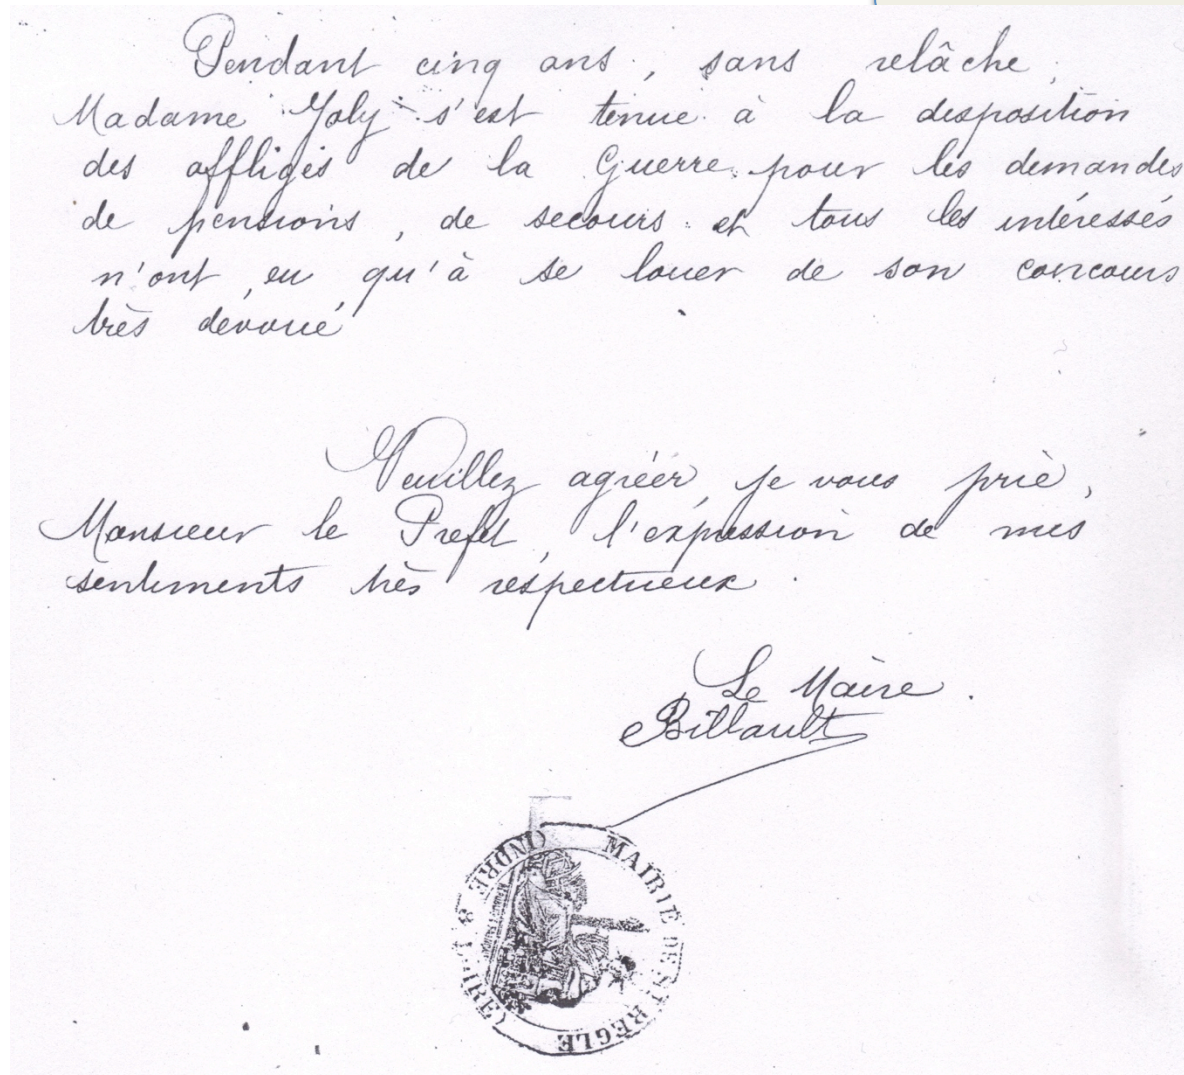 Pendant cinq ans, sans relâche,
Madame Joly s'est tenue à la disposition
des affligés de la Guerre pour les demandes
de pensions, de secours et tous les intéressés
n'ont eu qu'à se louer de son concours
très dévoué
Veuillez agréer, je vous prie,
Monsieur le Préfet, l'expression de mes
sentiments très respectueux.
Le Maire.
Billault
MAIRIE DE ST RÈGLE
(INDRE & LOIRE)